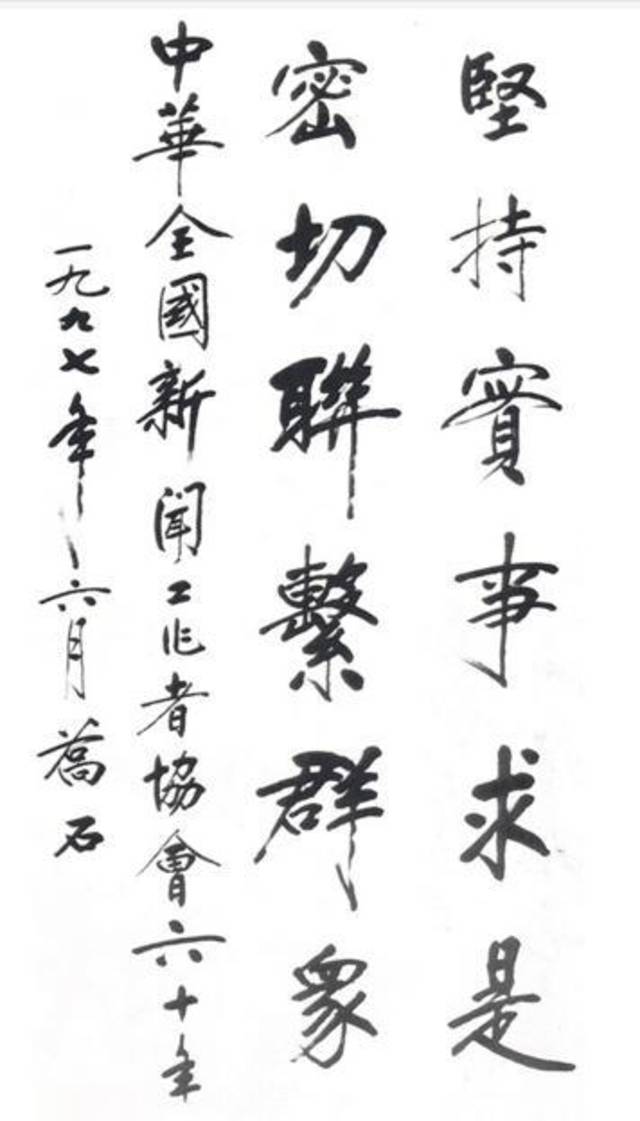 堅持實事求是
密切聯繫群衆
中華全國新聞工作者協會六十年
一九九七年六月 喬石